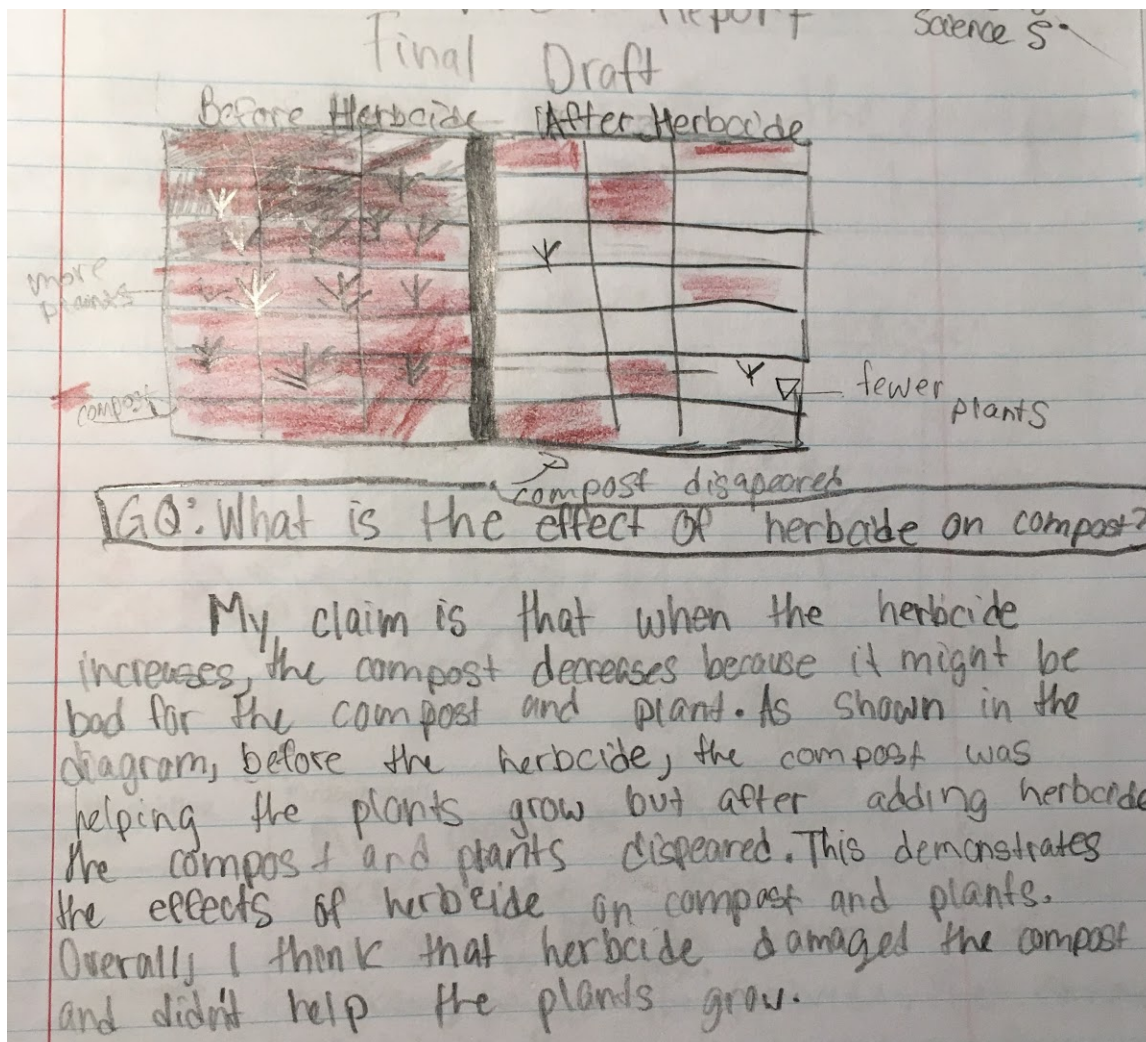 Report
Science 5
Final Draft
Before Herbcide
After Herbcide
more
plants
compost
fewer
plants
compost disapeared
GQ: What is the effect of herbcide on compost?
My claim is that when the herbicide
increases, the compost decreases because it might be
bad for the compost and plant. As shown in the
diagram, before the herbcide, the compost was
helping the plants grow but after adding herbcide
the compost and plants dispeared. This demonstrates
the effects of herbicide on compost and plants.
Overall, I think that herbcide damaged the compost
and didn't help the plands grow.